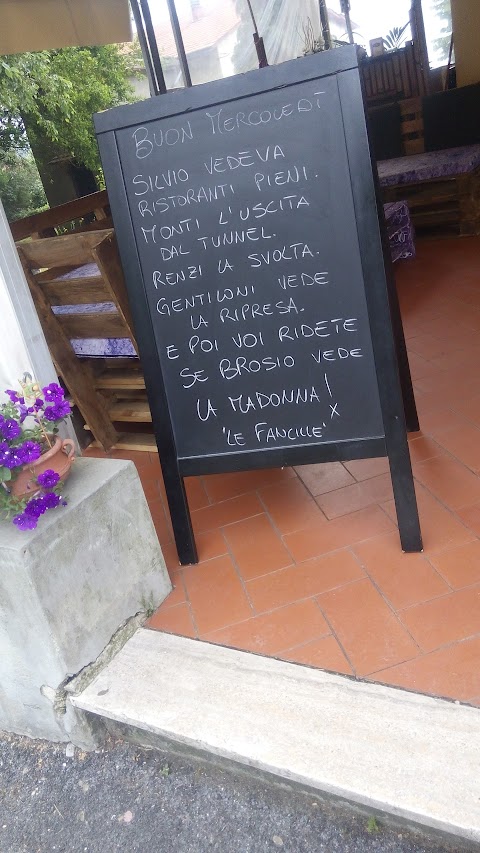 BUON MERCOLEDÌ
SILVIO VEDEVA
RISTORANTI PIENI.
MONTI L'USCITA
DAL TUNNEL.
RENZI LA SVOLTA.
GENTILONI VEDE
LA RIPRESA.
E POI VOI RIDETE
SE BROSIO VEDE
LA MADONNA!
X
'LE FANCILLE'